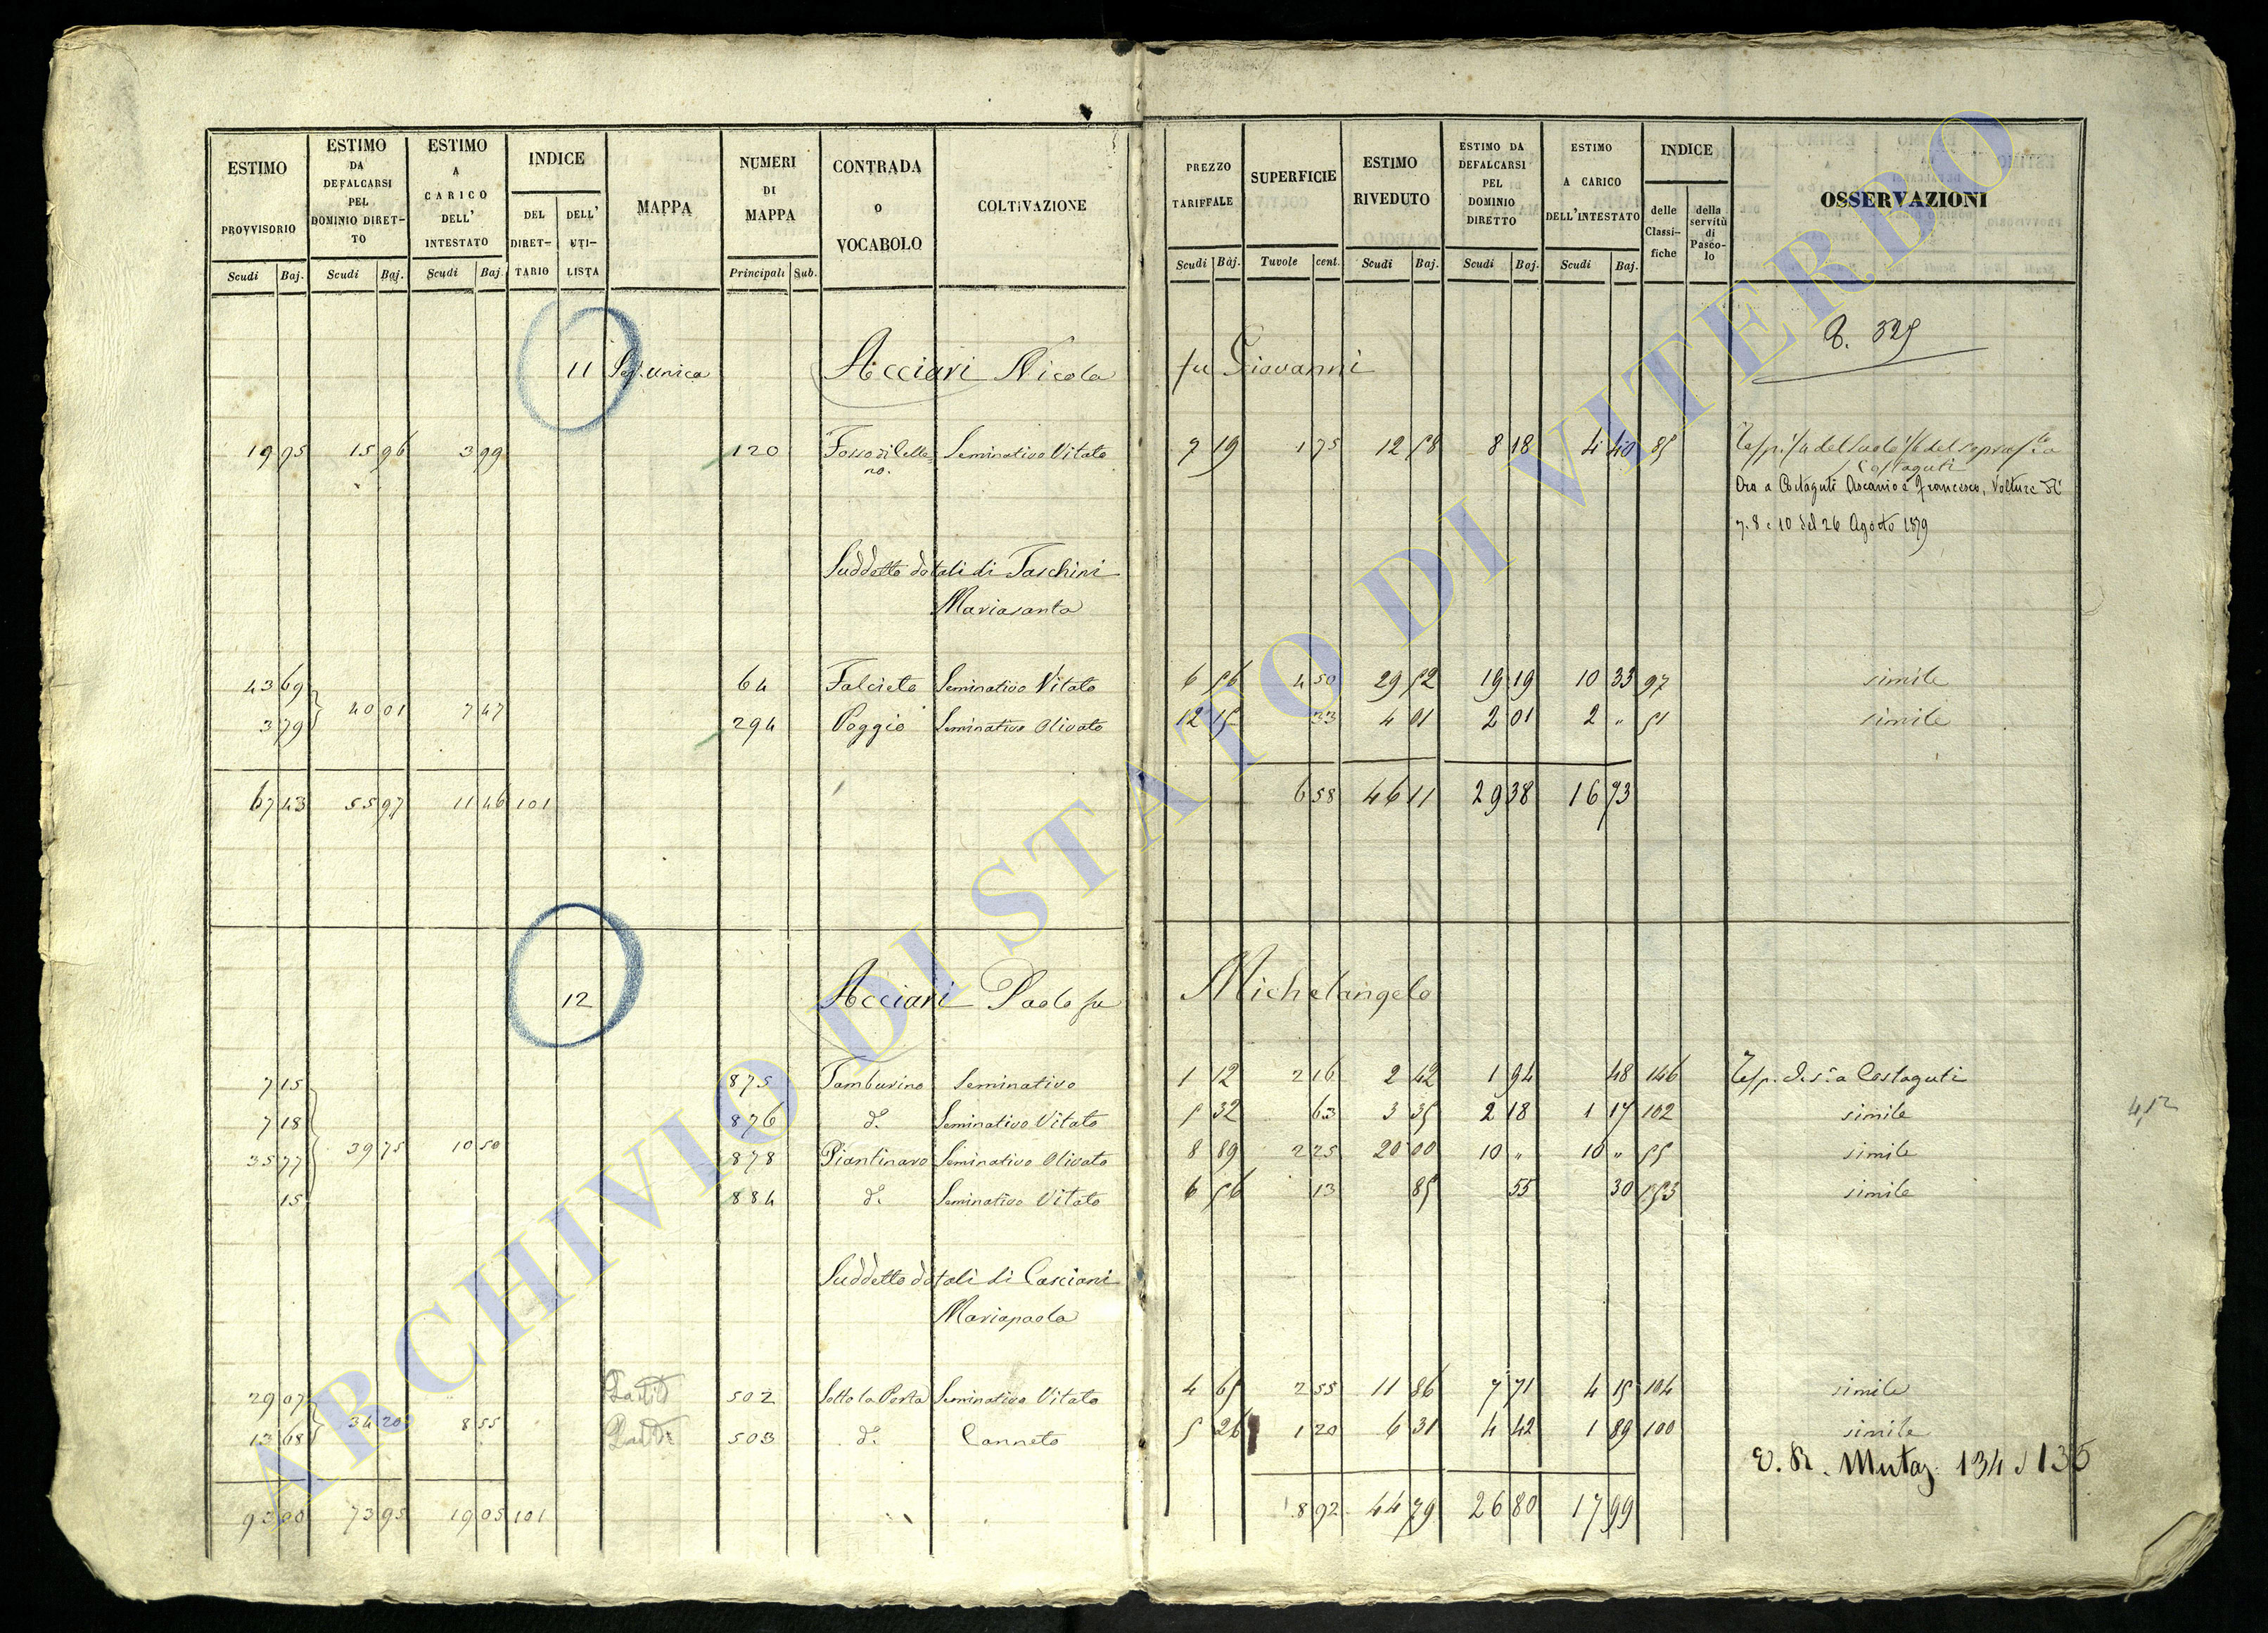 ESTIMO PROVVISORIO Scudi Baj. ESTIMO DA DEFALCARSI PEL DOMINIO DIRET-TO Scudi Baj. ESTIMO A CARICO DELL' INTESTATO Scudi Baj. INDICE DEL DIRET-TARIO DELL' UTI-LISTA MAPPA NUMERI DI MAPPA Principali Sub. CONTRADA O VOCABOLO COLTIVAZIONE PREZZO TARIFFALE Scudi Baj. SUPERFICIE Tavole cent. ESTIMO RIVEDUTO Scudi Baj. ESTIMO DA DEFALCARSI PEL DOMINIO DIRETTO Scudi Baj. ESTIMO A CARICO DELL'INTESTATO Scudi Baj. INDICE delle Classi-fiche della servitù di Pasco-lo OSSERVAZIONI
329
11 unica Acciari Nicola fu Giovanni
19 95 15 96 3 99 120 Fosso di Celle- Seminativo Vitato 7 19 1 75 12 58 8 18 4 40 85
no. Costaguti
Ora a Costaguti Ascanio e Francesco, Volture Ni
7. 8 e 10 del 26 Agosto 1879
Suddetto dotali di Taschini
Mariasanta
43 69 64 Falcieto Seminativo Vitato 6 56 4 50 29 52 19 19 10 33 97 simile
40 01 7 47
3 79 294 Poggio Seminativo Olivato 12 15 33 4 01 2 01 2 " 51 simile
67 43 55 97 11 46 101 6 58 46 11 29 38 16 73
12 Acciari Paolo fu Michelangelo
7 15 875 Tamburino Seminativo 1 12 2 16 2 42 1 94 48 146 Costaguti
7 18 876 d. Seminativo Vitato 5 32 63 3 35 2 18 1 17 102 simile
39 75 10 50
35 77 878 Piantinaro Seminativo Olivato 8 89 2 25 20 00 10 " 10 " 55 simile
15 884 d. Seminativo Vitato 6 56 13 85 55 30 153 simile
Suddetto dotali di Casciani
Mariapaola
29 07 502 Sotto la Porta Seminativo Vitato 4 65 2 55 11 86 7 71 4 15 104 simile
34 20 8 55
13 68 503 d. Canneto 5 26 1 20 6 31 4 42 1 89 100 simile
V. R. Mutaz. 134 135
93 00 73 95 19 05 101 8 92 44 79 26 80 17 99
ARCHIVIO DI STATO DI VITERBO